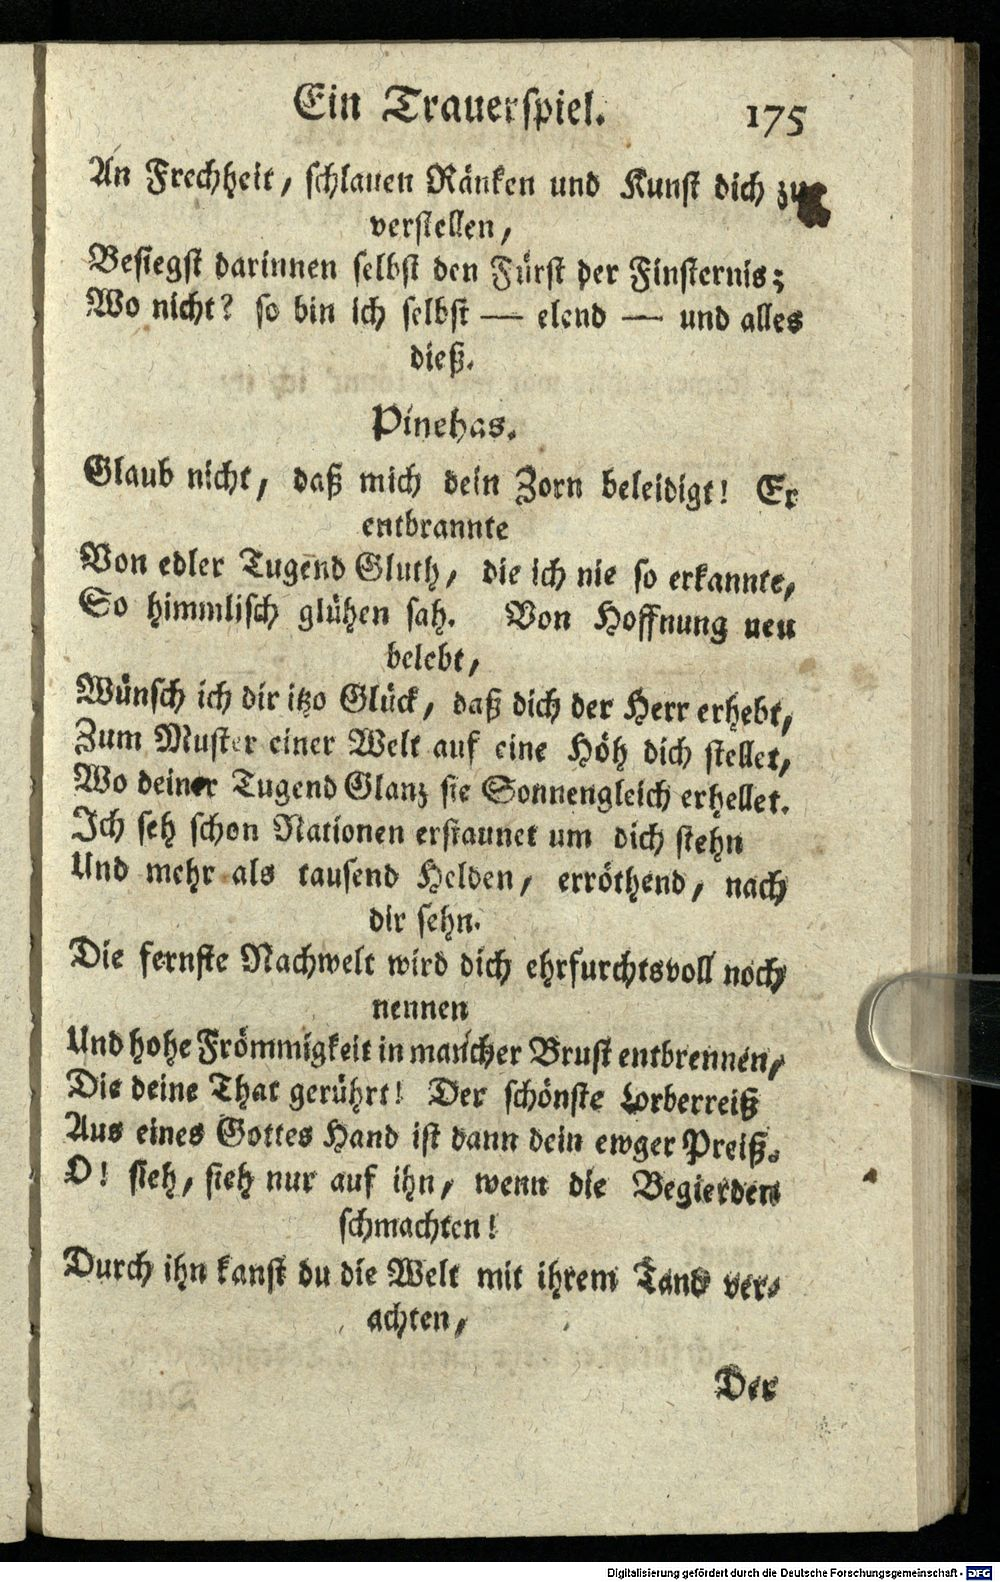 Ein Trauerspiel. 175
An Frechheit, schlauen Ränken und Kunst dich zu
verstellen,
Besiegst darinnen selbst den Fürst der Finsternis;
Wo nicht? so bin ich selbst — elend — und alles
dieß.
Pinehas.
Glaub nicht, daß mich dein Zorn beleidigt! Er
entbrannte
Von edler Tugend Gluth, die ich nie so erkannte,
So himmlisch glühen sah. Von Hoffnung neu
belebt,
Wünsch ich dir itzo Glück, daß dich der Herr erhebt,
Zum Muster einer Welt auf eine Höh dich stellet,
Wo deiner Tugend Glanz sie Sonnengleich erhellet.
Ich seh schon Nationen erstaunet um dich stehn
Und mehr als tausend Helden, erröthend, nach
dir sehn.
Die fernste Nachwelt wird dich ehrfurchtsvoll noch
nennen
Und hohe Frömmigkeit in mancher Brust entbrennen,
Die deine That gerührt! Der schönste Lorberreiß
Aus eines Gottes Hand ist dann dein ewger Preiß.
O! sieh, sieh nur auf ihn, wenn die Begierden
schmachten!
Durch ihn kanst du die Welt mit ihrem Tand ver-
achten,
Der
Digitalisierung gefördert durch die Deutsche Forschungsgemeinschaft - DFG